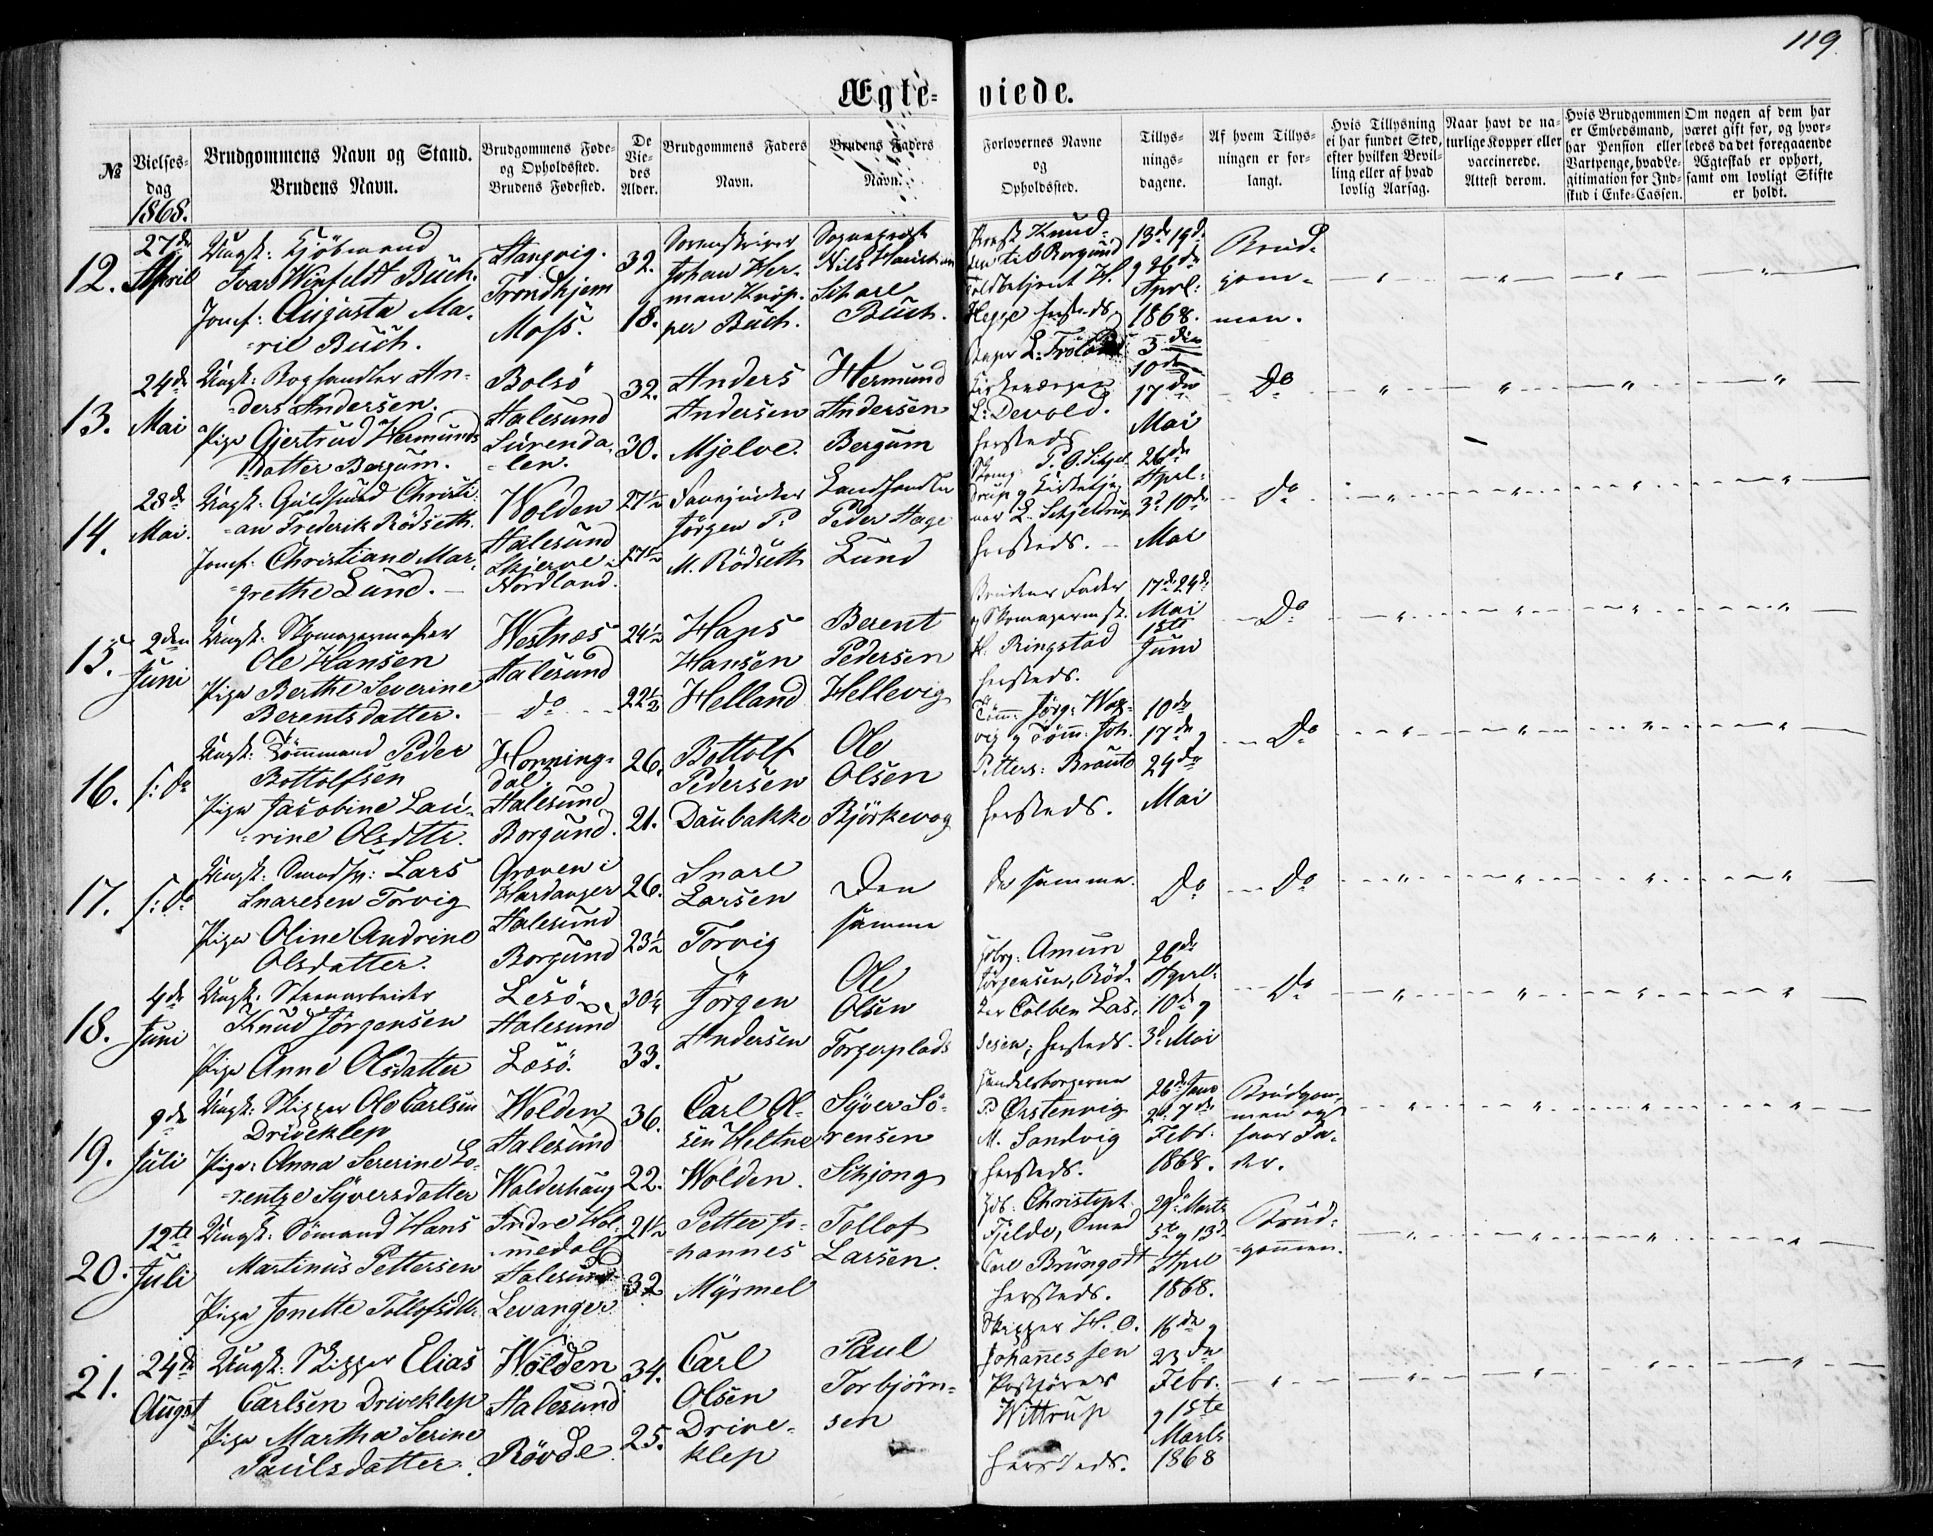 119.
Ægteviede.
№
Vielsesdag
1868.
Brudgommens Navn og Stand.
Brudens Navn.
Brudgommens Føde- og Opholdssted.
Brudens Fødested.
De Viedes Alder.
Brudgommens Faders Navn.
Brudens Faders Navn.
Forlovernes Navne og Opholdssted.
Tillysningsdagene.
Af hvem Tillysningen er forlangt.
Hvis Tillysning ei har fundet Sted, efter hvilken Bevilling eller af hvad lovlig Aarsag.
Naar havt de naturlige Kopper eller vaccinerede. Attest derom.
Hvis Brudgommen er Embedsmand, har Pension eller Vartpenge, hvad Legitimation for Indskud i Enke-Cassen.
Om nogen af dem har været gift før, og hvorledes da det foregaaende Ægteskab er ophørt, samt om lovligt Skifte er holdt.
12.
27de
April
Ungk: Kjöbmand
Ivar Winfeldt Buch.
Jomf: Augusta Ma-
rie Buch.
Stangvig.
Trondhjem
Moss.
32.
18.
Sorenskriver
Johan Her-
man Knop-
per Buch.
Sogneprest
Nils
Buch.
til Borgund
Toldbetjent H.
hersteds
13de 19de
g 26de
April
1868.
Brud-
gom-
men.
13.
24de
Mai
Ungk: Boghandler An-
ders Andersen.
Pige Gjertrud Hermunds
datter Bergum.
Bolsö
Aalesund
Surenda-
len.
32.
30.
Anders
Andersen
Mjelve.
Hermund
Andersen
Bergum
Kirkeværger
L: Devold.
hersteds
3die
10de
17de
Mai
Do
14.
28de
Mai.
Ungk: Guldsmed Christi-
an Frederik Rödseth.
Jomf: Christiane Mar-
grethe Lund.
Wolden
Aalesund
Skjerve i
Nordland.
27½
27½
Jörgen P.
M. Rödseth
Landhandler
Peder Hage
Lund
L. Schjeldrup
hersteds.
26de
April:
3d 10de
Mai
Do
15.
2den
Juni
Ungk: Skomagermester
Ole Hansen
Pige Berthe Severine
Berentsdatter.
Westnæs
Aalesund
do
24½
22½
Hans
Hansen
Helland
Berent
Pedersen
Hellevig
Brudens Fader
g Skomagermest.
H. Ringstad
hersteds.
17de 24de
Mai
1ste
Juni
Do
16.
s: D.
Ungk: Tömmermand Peder
Bottolfsen
Pige Jacobine Lau-
rine Olsdtr.
Hornning-
dal.
Aalesund
Borgund.
26.
21.
Bottolf
Pedersen
Daubakke
Ole
Olsen
Björkevog
Tömm: Jörg:
vig g Tömm. Joh.
Petters:
hersteds.
10de
17de g
24de
Mai
Do
17.
s: D.
Ungk: Smedsv: Lars
Snaresen Torvig
Pige Oline Andrine
Olsdatter.
Graven i
Hardanger
Aalesund
Borgund
26.
23½
Snare
Larsen
Torvig
Den
samme
de samme.
Do
Do
18.
4de
Juni
Ungk: Steenarbeider
Knud Jörgensen
Pige Anne Olsdatter
Lesö
Aalesund
Lesö.
30¼
33.
Jörgen
Andersen
Ole
Olsen
Torgerplads
Amun
Jörgensen, Böd-
ker Colben Las-
sesen, hersteds.
26de
April:
10de g
3d Mai
Do
19.
9de
Juli
Ungk: Skipper Ole Carlsen
Driveklep
Pige: Anna Sererine Lo-
rentze Syversdatter
Wolden
Aalesund
Walderhaug
36.
22.
Carl Ol-
sen Heltne
Wolden.
Syver Sö-
rensen
Schjong
Handelsborgerne
P Ørstenvig
M. Sandvig
hersteds.
26de Janr
2d: 7de
Febr.
1868.
Brudgom-
men og
hans Fa-
der.
20.
12te
Juli
Ungk: Sömand Hans
Martinus Pettersen
Pige Jonette Tollofsdtr.
Indre Hol-
medal
Aalesund
Levanger
21½
32
Petter Jo-
hannes
Myrmel
Tollof
Larsen.
Christoph.
Fjelde, Smed
Carl Brungodt
hersteds.
29de Marts
5te g 13d
Aprl
1868.
Brud-
gommen.
21.
24de
August
Ungk: Skipper Elias
Carlsen Driveklep
Pige Martha Serine
Paulsdatter.
Wolden
Aalesund
Rövde
34.
25.
Carl
Olsen
Drive-
klep
Paul
Torbjörn-
sen
Skipper H. O.
Johannessen
Postförer
Wittrup
hersteds.
16de g
23de
Febr.
g 1ste
Marts
1868